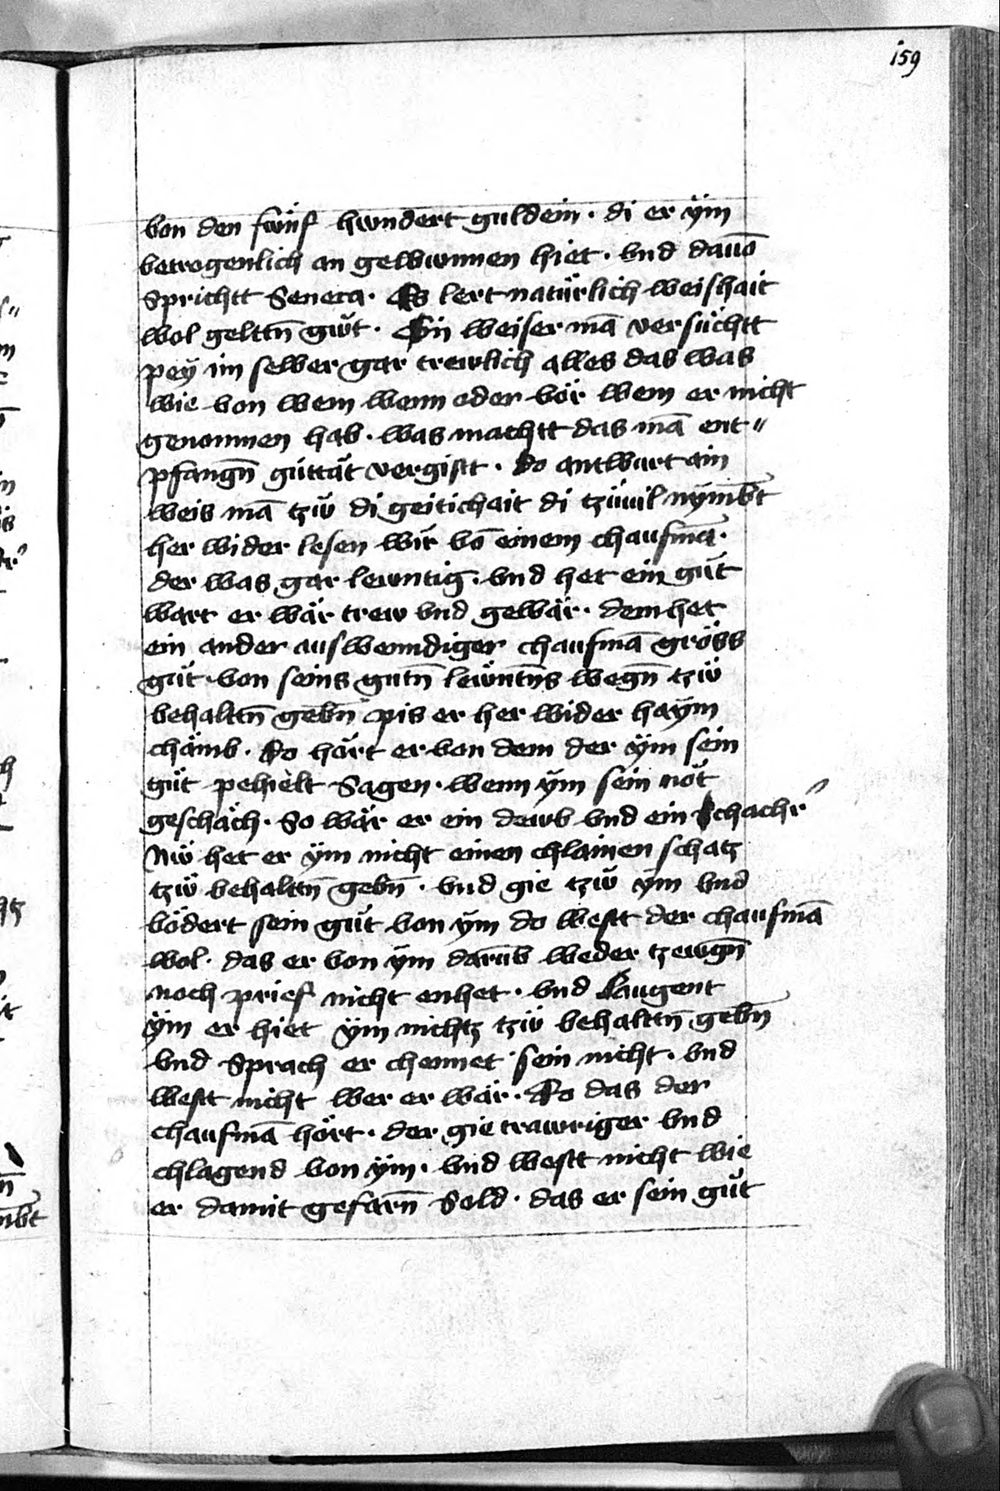 159
von den fwnf hwndert guldein · di er ÿm
betrogenlich an gelbwnnen hiet · vnd dauō
Sprichtt Seneca · Es lert natürlich weishait
wol gelttn̄ gwt · Ein weiser mā versüchtt
peÿ im selber gar trewlich alles das was
wie von wem wenn oder vör wem er nicht
genommen hab · was machtt das mā ent〃
pfangn̄ güttät vergistt · do antwurt ain
weis mā tzẅ di geitichait di tzüuil nÿmbt̄
her wider lesen wir vō einem chaufmā ·
der was gar lewntig · vnd het ein güt
wart er wär trew vnd gewär · dem het
ein ander auswenndiger chaufmā gröss
güt · von seins gutn̄ lewntn̄s wegn̄ tzẅ
behalttn̄ gebn̄ pis er her wider haÿm
chämb · do hört er von dem der ÿm sein
güt pehielt Sagen · wenn ÿm sein nöt
geschäch · So wär er ein dewb vnd ein schachr̉
Nẅ het er ÿm nicht einen chlainen schatz
tzẅ behalttn̄ gebn̄ · vnd gie tzẅ ÿm vnd
vödert sein güt von ÿm do westt der chaufmā
wol · das er von ÿm darūb weder tzewgn̄
noch prief nicht enhet · vnd Laugent
ÿm er hiet ÿm nichtz tzẅ behalttn̄ gebn̄
vnd Sprach er chennet sein nicht · vnd
westt nicht wer er wär · Do das der
chaufmā hört · der gie trawriger vnd
chlagend von ÿm · vnd westt nicht wie
er damit gefarn̄ Sold · das er sein güt